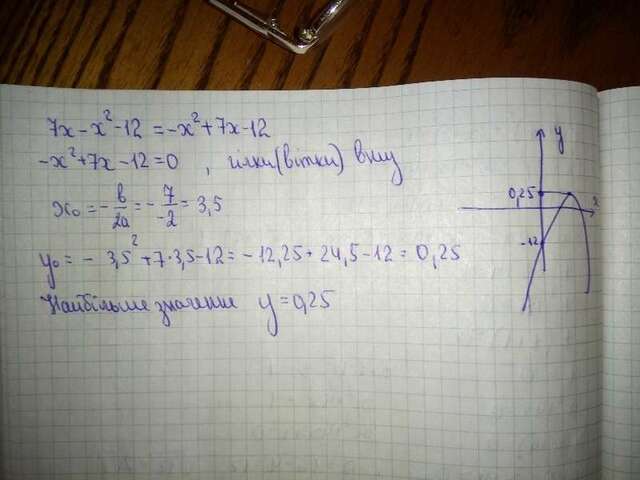 7x - x² - 12 = -x² + 7x - 12
-x² + 7x - 12 = 0 , гілки (вітки) вниз
x₀ = - b/2a = - 7/-2 = 3,5
y₀ = - 3,5² + 7·3,5 - 12 = - 12,25 + 24,5 - 12 = 0,25
Найбільше значення y = 0,25
y
0,25
x
-12